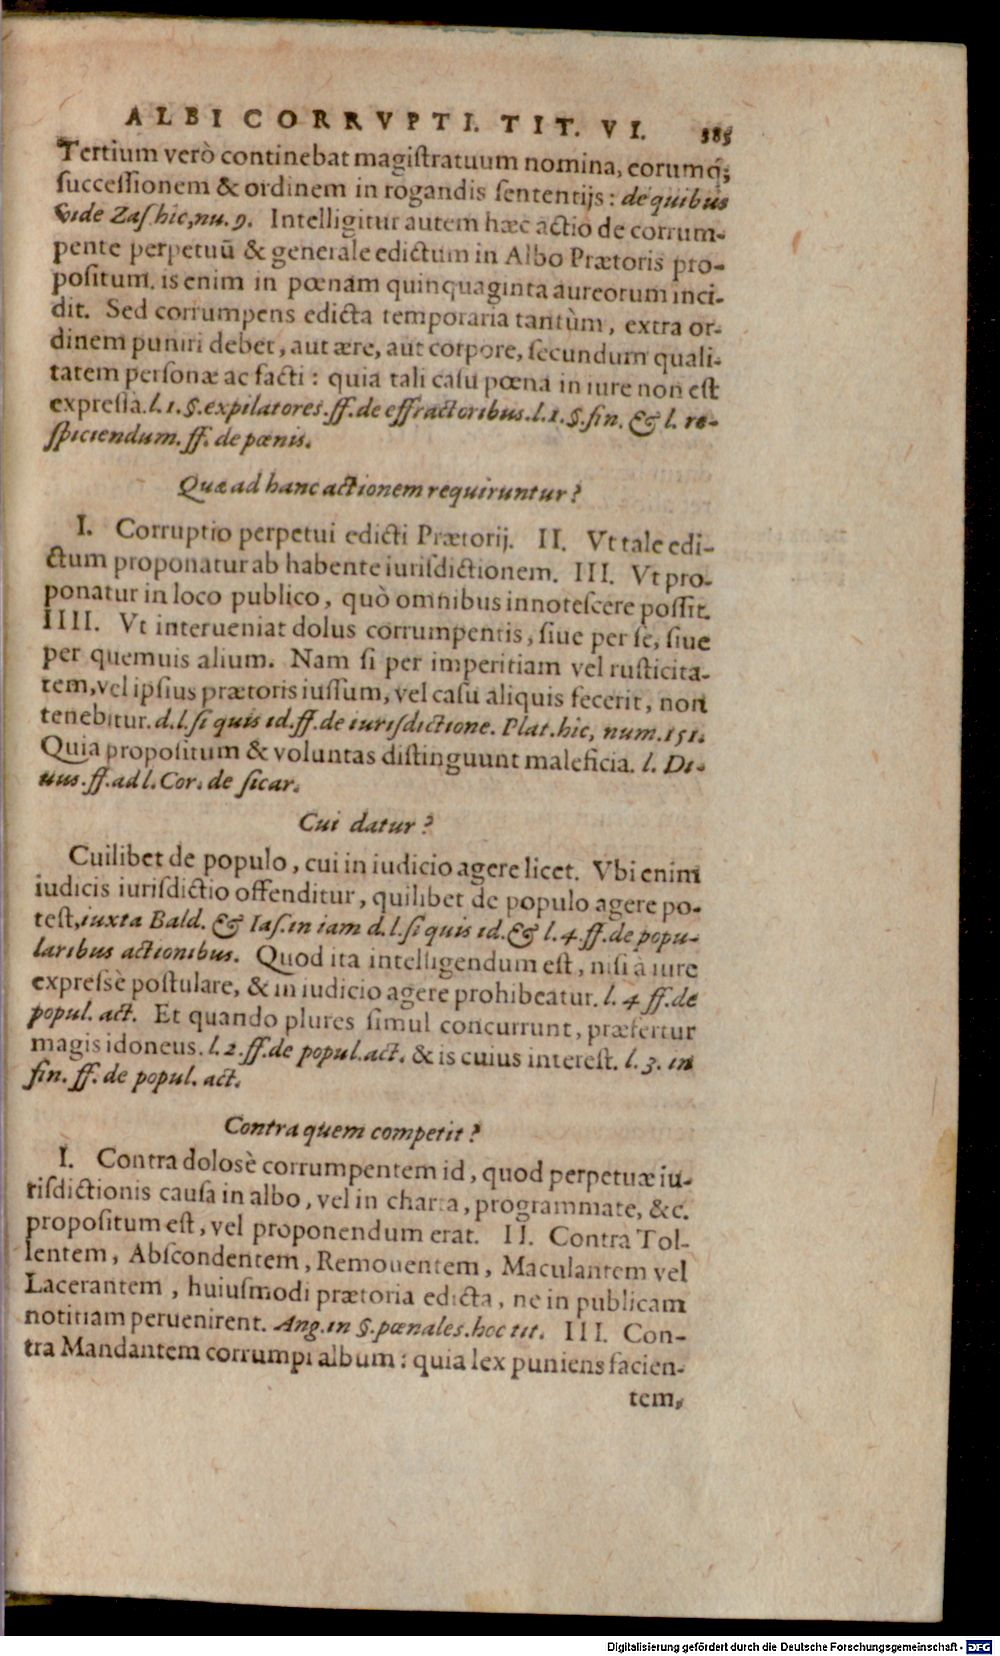 ALBI CORRVPTI. TIT. VI. 385
Tertium verò continebat magiſtratuum nomina, eorumq́;
ſucceſſionem & ordinem in rogandis ſententijs: de quibus
vide Zaſ. hic, nu. 9. Intelligitur autem hæc actio de corrum-
pente perpetuū & generale edictum in Albo Prætoris pro-
poſitum. is enim in pœnam quinquaginta aureorum inci-
dit. Sed corrumpens edicta temporaria tantùm, extra or-
dinem puniri debet, aut ære, aut corpore, ſecundum quali-
tatem perſonæ ac facti: quia tali caſu pœna in iure non eſt
expreſſa. l. 1. §. expilatores. ff. de effractoribus. l. 1. §. fin. & l. re-
ſpiciendum. ff. de pœnis.
Quæ ad hanc actionem requiruntur?
I. Corruptio perpetui edicti Prætorij. II. Vt tale edi-
ctum proponatur ab habente iuriſdictionem. III. Vt pro-
ponatur in loco publico, quò omnibus innoteſcere poſſit.
IIII. Vt interueniat dolus corrumpentis, ſiue per ſe, ſiue
per quemuis alium. Nam ſi per imperitiam vel ruſticita-
tem, vel ipſius prætoris iuſſum, vel caſu aliquis fecerit, non
tenebitur. d. l. ſi quis id. ff. de iuriſdictione. Plat. hic, num. 151.
Quia propoſitum & voluntas diſtinguunt maleficia. l. Di-
uus. ff. ad l. Cor. de ſicar.
Cui datur?
Cuilibet de populo, cui in iudicio agere licet. Vbi enim
iudicis iuriſdictio offenditur, quilibet de populo agere po-
teſt, iuxta Bald. & Iaſ. in iam d. l. ſi quis id. & l. 4. ff. de popu-
laribus actionibus. Quod ita intelligendum eſt, niſi à iure
expreſsè poſtulare, & in iudicio agere prohibeatur. l. 4 ff. de
popul. act. Et quando plures ſimul concurrunt, præfertur
magis idoneus. l. 2. ff. de popul. act. & is cuius intereſt. l. 3. in
fin. ff. de popul. act.
Contra quem competit?
I. Contra doloſè corrumpentem id, quod perpetuæ iu-
riſdictionis cauſa in albo, vel in charta, programmate, &c.
propoſitum eſt, vel proponendum erat. II. Contra Tol-
lentem, Abſcondentem, Remouentem, Maculantem vel
Lacerantem, huiuſmodi prætoria edicta, ne in publicam
notitiam peruenirent. Ang. in §. pœnales. hoc tit. III. Con-
tra Mandantem corrumpi album: quia lex puniens facien-
tem,
Digitalisierung gefördert durch die Deutsche Forschungsgemeinschaft - DFG